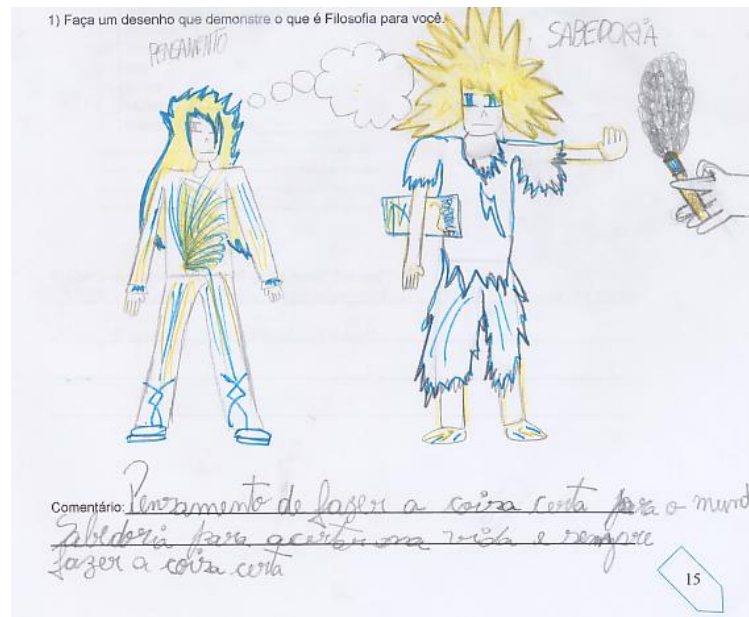 1) Faça um desenho que demonstre o que é Filosofia para você.
PENSAMENTO
SABEDORIA
Comentário: Pensamento de fazer a coisa certa para o mund
Sabedoria para acertar na vida e sempre
fazer a coisa certa
15